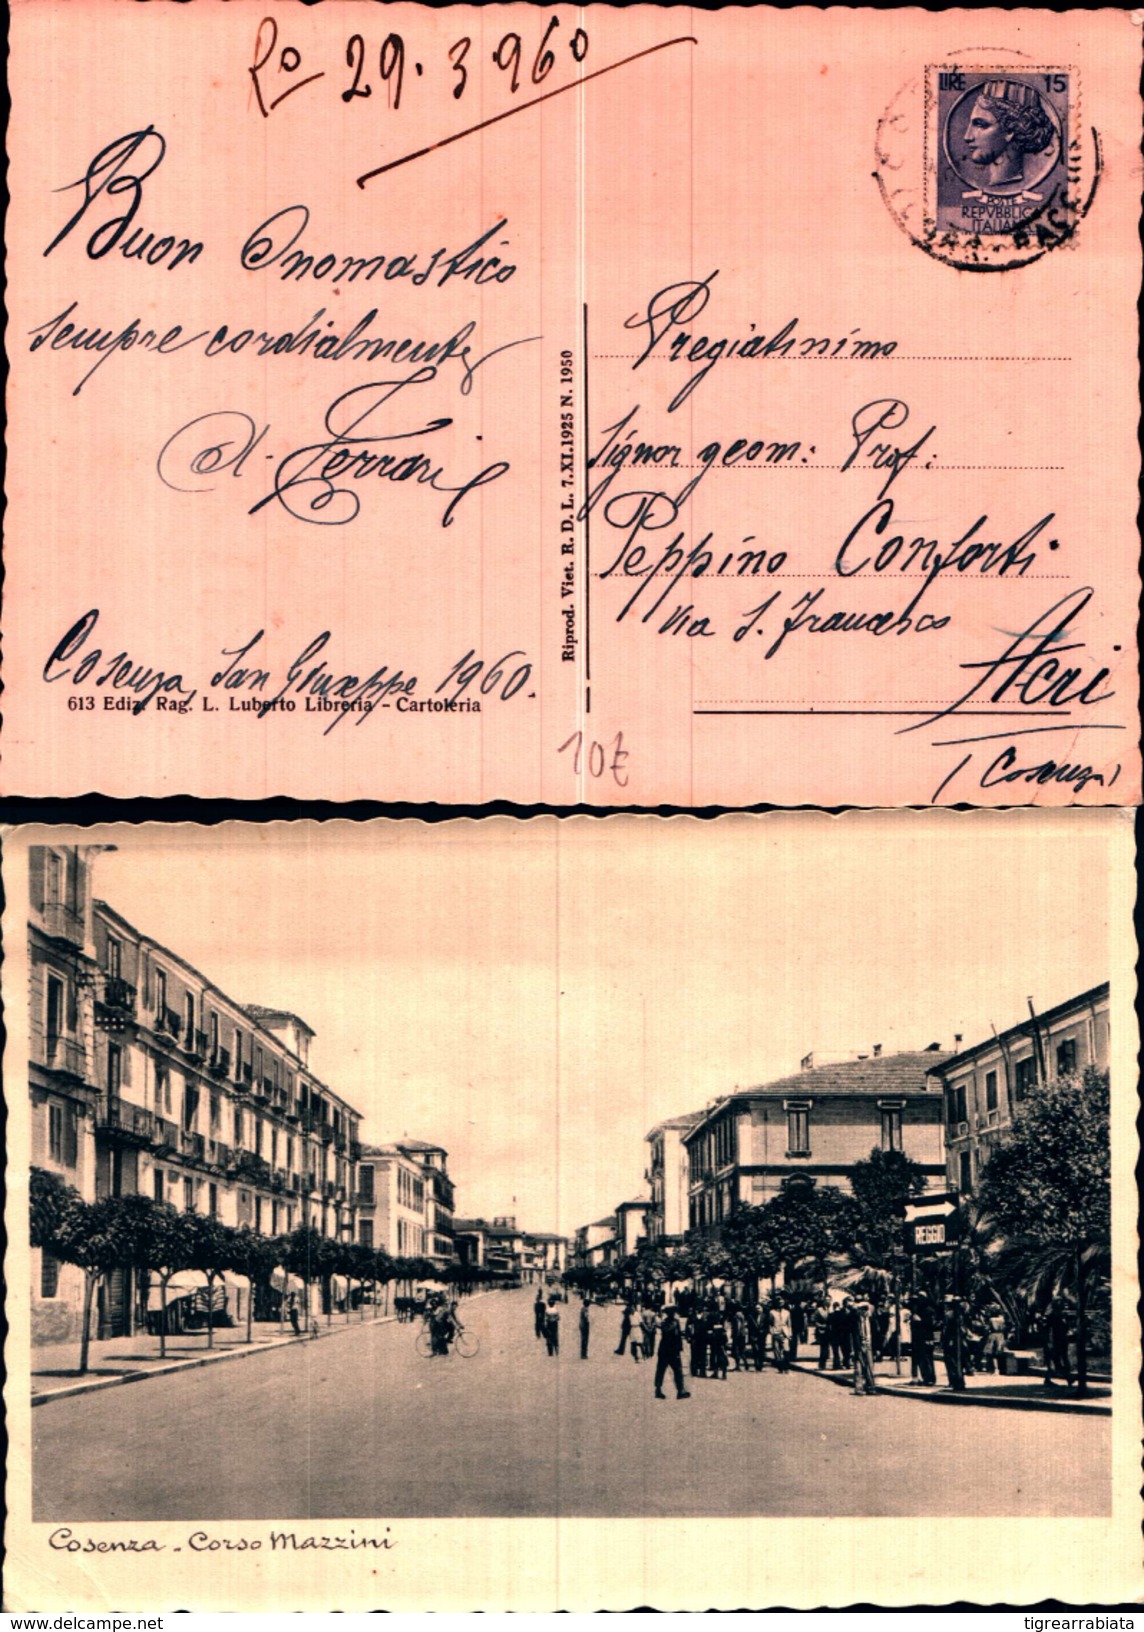 Ro 29.3.960
LIRE 15
POSTE
REPVBBLICA
ITALIANA
Buon Onomastico
sempre cordialmente
A. Ferrari
Cosenza, San Giuseppe 1960.
613 Ediz. Rag. L. Luberto Libreria - Cartoleria
Riprod. Viet. R. D. L. 7.XI.1925 N. 1950
Pregiatissimo
Signor geom: Prof:
Peppino Conforti
Via S. Francesco
Acri
(Cosenza)
10€
REGGIO
Cosenza - Corso Mazzini
delcampe.net
tigrearrabiata